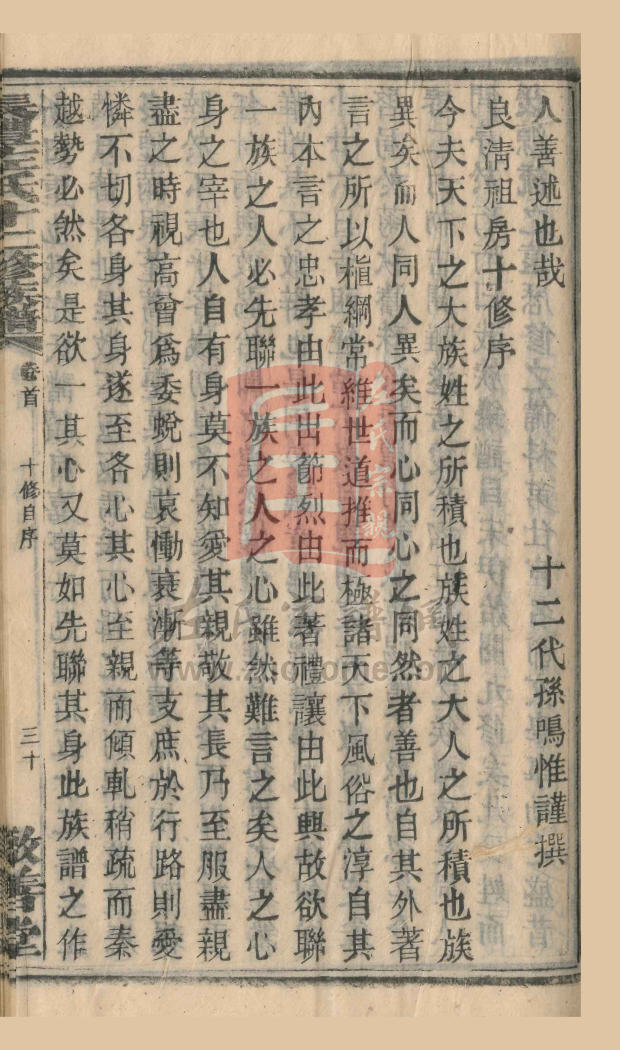 人善述也哉
十二代孫鳴惟謹撰
良清祖房十修序
今夫天下之大族姓之所積也族姓之大人之所積也族
異矣而人同人異矣而心同心之同然者善也自其外著
言之所以植綱常維世道推而極諸天下風俗之淳自其
內本言之忠孝由此出節烈由此著禮讓由此興故欲聯
一族之人必先聯一族之人之心雖然難言之矣人之心
身之宰也人自有身莫不知愛其親敬其長乃至服盡親
盡之時視高曾爲委蛻則哀慟衰漸等支庶於行路則愛
憐不切各身其身遂至各心其心至親而傾軋稍疏而秦
越勢必然矣是欲一其心又莫如先聯其身此族譜之作
氏十二修族譜
卷首
十修自序
三十
敬善堂
www.zuohome.com